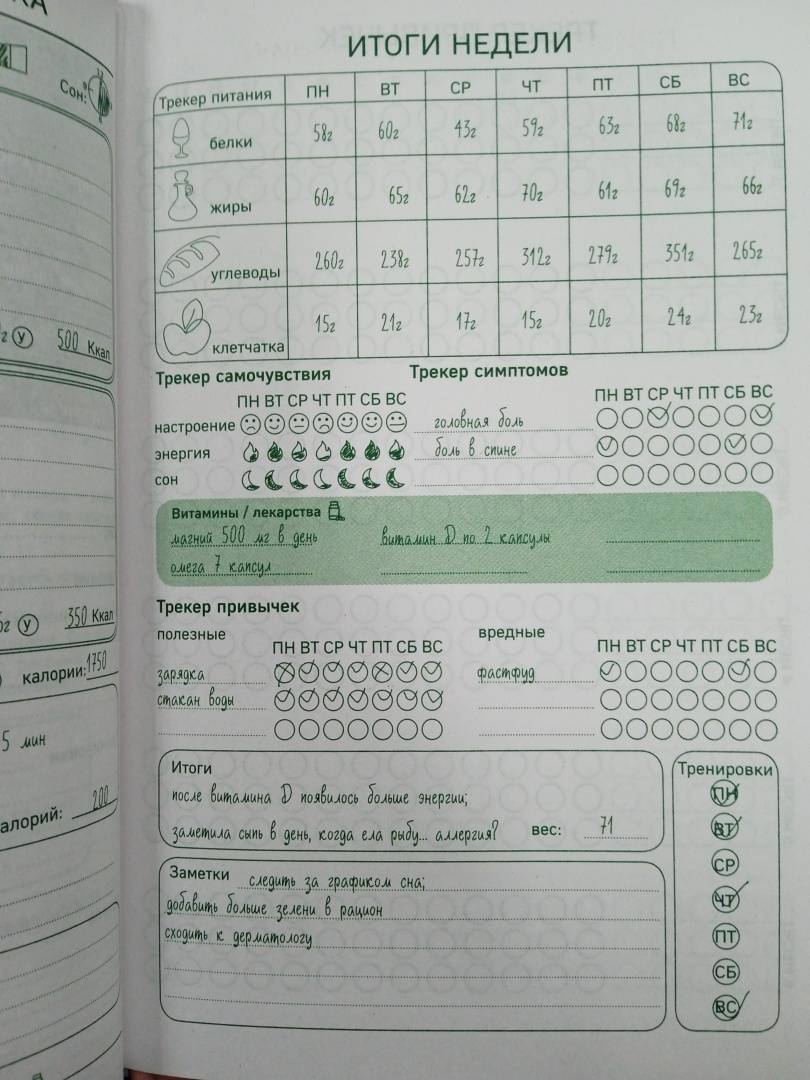 КА
Сон:
500 Ккал
г У
350 Ккал
калории: 1750
5 мин
алорий: 200
ИТОГИ НЕДЕЛИ
Трекер питания ПН ВТ СР ЧТ ПТ СБ ВС
белки 58г 60г 43г 59г 63г 68г 71г
жиры 60г 65г 62г 70г 61г 69г 66г
углеводы 260г 238г 257г 312г 279г 351г 265г
клетчатка 15г 21г 17г 15г 20г 24г 23г
Трекер самочувствия Трекер симптомов
ПН ВТ СР ЧТ ПТ СБ ВС ПН ВТ СР ЧТ ПТ СБ ВС
настроение головная боль
энергия боль в спине
сон
Витамины / лекарства
магний 500 мг в день витамин D по 2 капсулы
омега 7 капсул
Трекер привычек
полезные вредные
ПН ВТ СР ЧТ ПТ СБ ВС ПН ВТ СР ЧТ ПТ СБ ВС
зарядка фастфуд
стакан воды
Итоги
после витамина D появилось больше энергии;
заметила сыпь в день, когда ела рыбу... аллергия? вес: 71
Заметки следить за графиком сна;
добавить больше зелени в рацион
сходить к дерматологу
Тренировки
ПН
ВТ
СР
ЧТ
ПТ
СБ
ВС